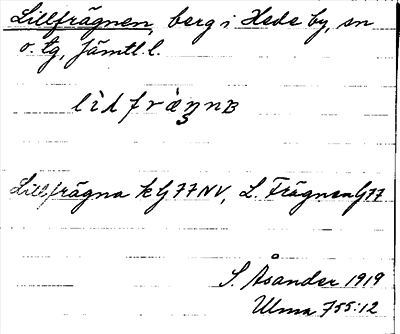 Lillfrägnen, berg i Hede by, sn
o. tg, Jämtl. l.
Lillfrägna k G 77 NV, L. Frägnen G 77
S. Åsander 1919
Ulma 755:12